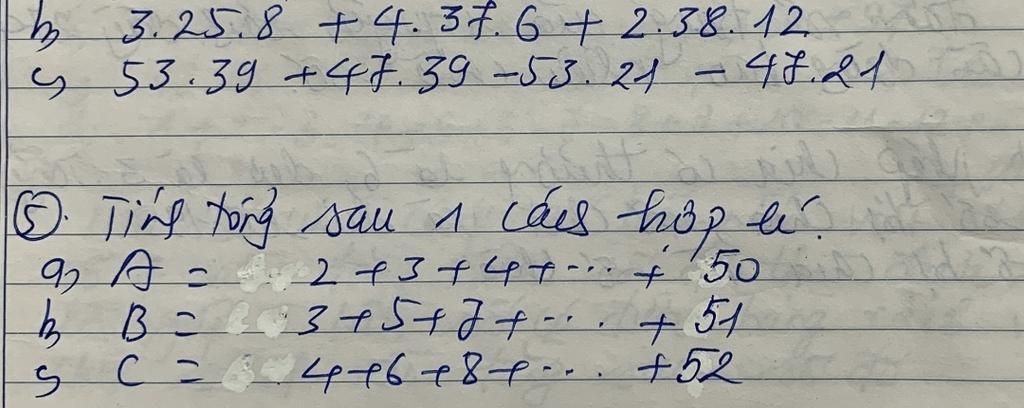 b, 3.25.8 + 4.37.6 + 2.38.12
c, 53.39 + 47.39 - 53.21 - 47.21
⑤. Tính tổng sau 1 cách hợp lí.
a, A = 2 + 3 + 4 + ... + 50
b, B = 3 + 5 + 7 + ... + 51
c, C = 4 + 6 + 8 + ... + 52